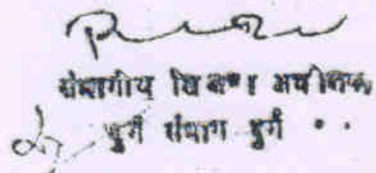 संभागीय शिक्षण अधीक्षक
दुर्ग संभाग दुर्ग . .